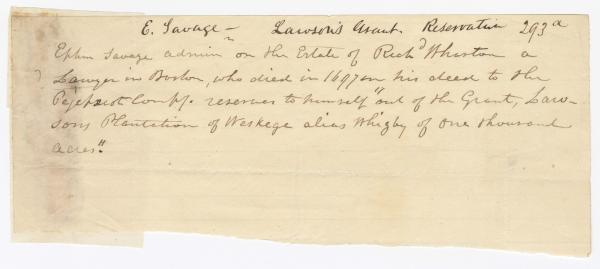 E. Savage — Lawson's Grant. Reservation 293a
Ephm Savage admin on the Estate of Richd Wharton a
Lawyer in Boston, who died in 1697 on his deed to the
Pejepscot Comp'y. reserves to himself "out of the Grant, Law-
sons Plantation of Weskege alias Whigby of one thousand
acres".